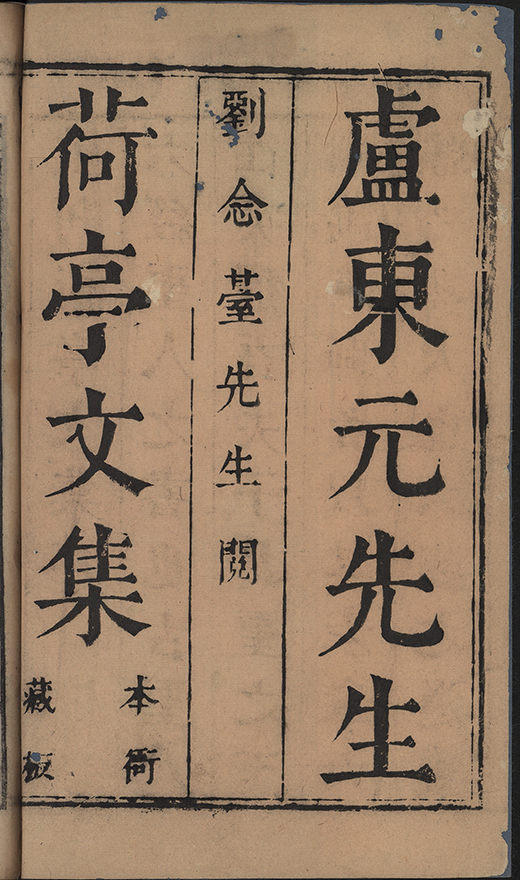 盧東元先生
劉念臺先生閱
荷亭文集
本衙
藏板